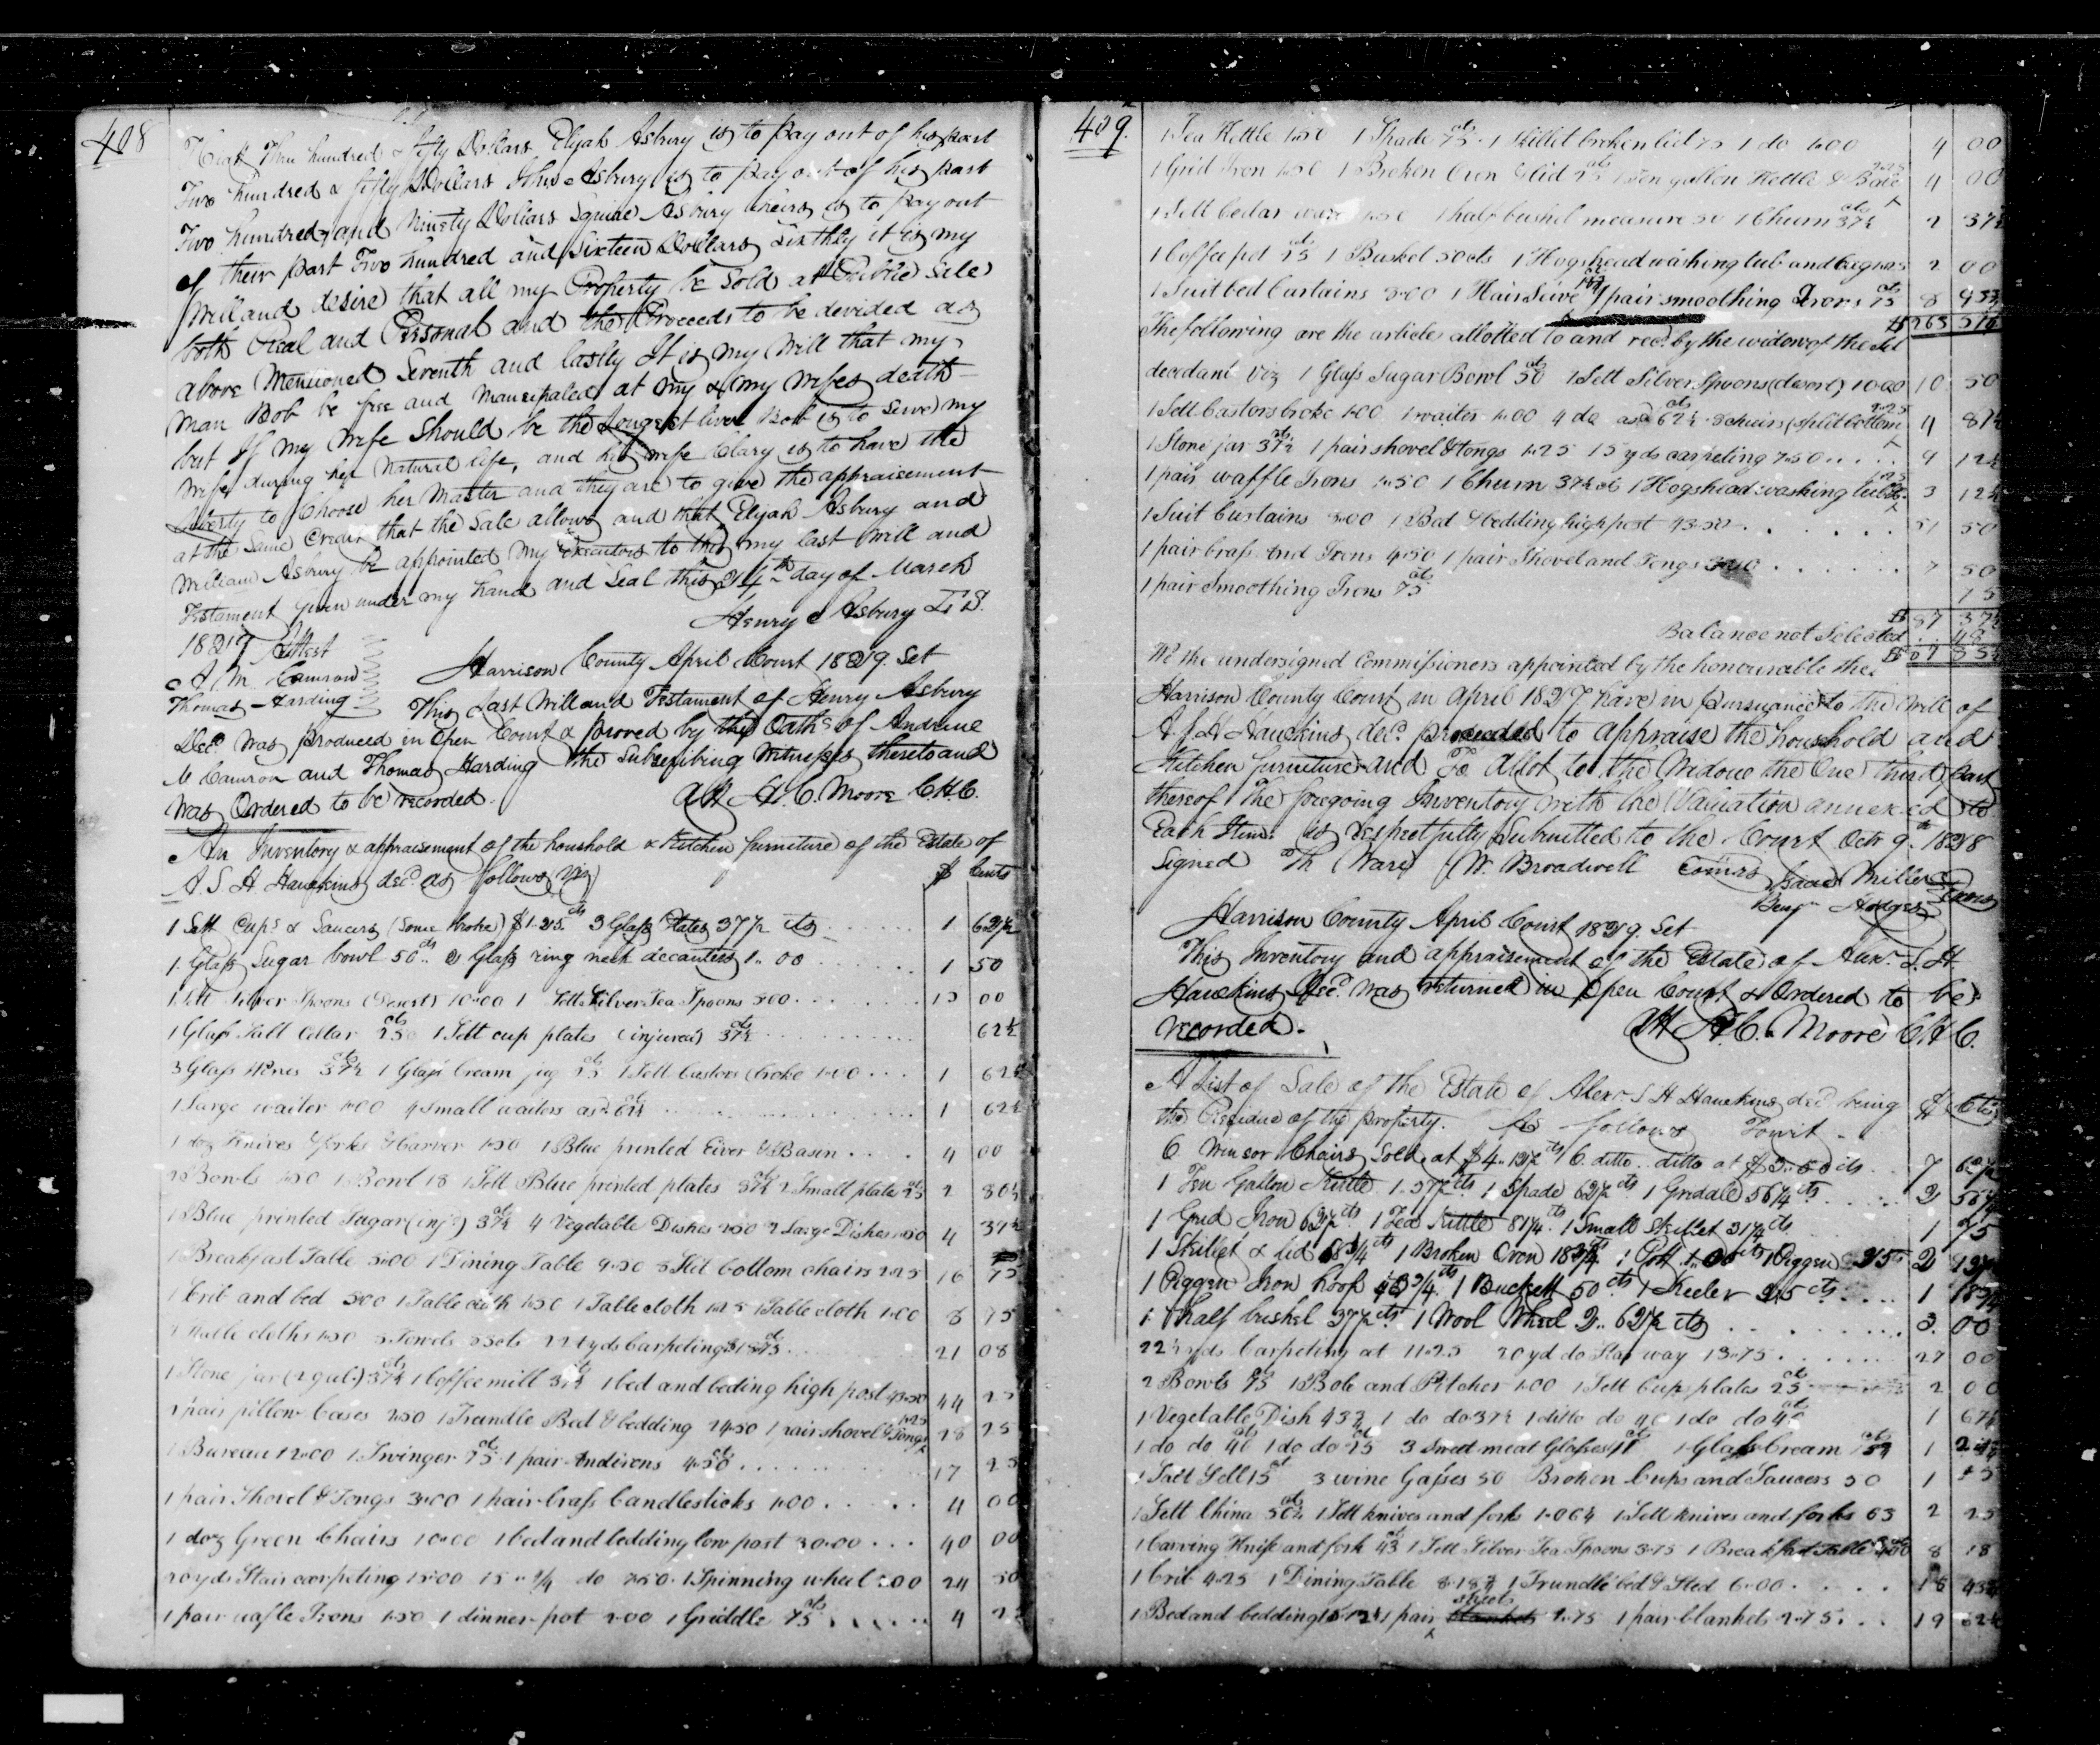 408
Three hundred & fifty Dollars Elijah Asbury is to pay out of his part
Two hundred & fifty Dollars Asbury is to pay out of his part
Two hundred and Ninety Dollars Squire Asbury heirs is to pay out
of their part Two hundred and Sixteen Dollars Sixthly it is my
Will and desire that all my Property be Sold at Publice Sale
both Real and Personal and the Proceeds to be devided as
above Mentioned Seventh and lastly It is my Will that my
Man Bob be free and Mancipated at my & my Wifes death
but If my Wife Should be the Longest liver Bob is to Serve my
Wife during her Natural life, and his wife Clary is to have the
Liberty to Choose her Master and they are to give the appraisement
at the Same Credit that the Sale allows and that Elijah Asbury and
William Asbury be appointed my Executors to this my last Will and
Testament Given under my hand and Seal this 24th day of March
1827 Attest Henry Asbury L.S.
A Mc Camron
Thomas Harding
Harrison County April Court 1829. Set
This Last Will and Testament of Henry Asbury
Decd. Was Produced in Open Court & proved by the Oaths of Andrew
Mc Camron and Thomas Harding the Subscribing Witnesses thereto and
Was Ordered to be recorded. Att H. C. Moore C.H.C.
An Inventory & appraisement of the houshold & Kitchen furneture of the Estate of
A. S. H. Hawkins decd. as follows Viz $ Cents
1 Sett Cups & Saucers (Some broke) $1.25 cts 3 Glass Plates 37½ cts 1 62½
1 Glass Sugar bowl 50 cts 2 Glass ring neck decanters 1..00 1 50
1 Sett Silver Spoons (Desert) 10.00 1 Sett Silver Tea Spoons 5.00 15 00
1 Glass Salt Cellar 25 1 Sett cup plates (injured) 37½ cts 62½
3 Glass Wines 37½ cts 1 Glass Cream jug 25 cts 1 Sett Castors (broke 1.00 1 62½
1 Large waiter 1.00 4 Small waiters asd. 62½ cts 1 62½
1 doz Knives & forks & Carver 1.50 1 Blue printed Ewer & Basin 4 00
2 Bowls 1.50 1 Bowl 18 1 Sett Blue printed plates 37½ cts 2 Small plate 25 cts 2 30½
1 Blue printed Sugar (injd.) 37½ cts 4 Vegetable Dishes 2.50 2 Large Dishes 1.50 4 37½
1 Breakfast Table 5.00 1 Dining Table 9.50 5 Slit bottom chairs 2.25 16 75
1 Crib and bed 5.00 1 Table cloth 1.50 1 Table cloth 1.25 1 Table cloth 1.00 8 75
2 Table cloths 1.50 5 Towels cts 22½ yds Carpeting 18.75 21 08
1 Stone jar (2 gal.) 37½ cts 1 Coffee mill 37½ 1 bed and beding high post 43.50 44 25
2 pair pillow Cases 2.50 1 Trundle Bed & bedding 24.50 1 pair shovel & Tongs 1.25 28 25
1 Bureau 12.00 1 Swinger 75 cts 1 pair Andirons 4.50 cts 17 25
1 pair Shovel & Tongs 3.00 1 pair brass Candlesticks 1.00 4 00
1 doz Green Chairs 10.00 1 bed and bedding low post 30.00 40 00
20 yds Stair carpeting 15.00 15 " ¾ do 7.50. 1 Spinning wheel 2.00 24 50
1 pair wafle Irons 1.50 1 dinner pot 2.00 1 Griddle 75 cts 4 25
409.
1 Tea Kettle 1.50 1 Spade 75 cts 1 Skillet broken lid 75 1 do 1.00 4 00
1 Grid Iron 1.50 1 Broken Oven & lid 25 cts 1 Ten gallon Kettle & Bale 2.25 4 00
1 Sett Cedar ware 1.50 1 half bushel measure 50 1 Churn 37½ cts 2 37½
1 Coffee pot 25 cts 1 Basket 50 cts 1 Hogshead washing tub and 2 00
1 Suit bed Curtains 8.00 1 Hair Seive 1 pair smoothing Irons 75 cts 8
$ 265 57
The following are the articles allotted to and recd. by the widow of the sd
decedant Viz 1 Glass Sugar Bowl 50 cts 1 Sett Silver Spoons (desert) 10.00 10 50
1 Sett Castors broke 1.00 1 waiter 1.00 4 do asd. 62½ cts 5 chairs (split bottom 2.25 4 87½
1 Stone jar 37½ cts 1 pair shovel & tongs 1.25 15 yds carpeting 7.50 9 12½
1 pair waffle Irons 1.50 1 Churn 37½ ct 1 Hogshead washing tub &c 1.25 3 12½
1 Suit Curtains 8.00 1 Bed & bedding high post 43.50 51 50
1 pair brass And Irons 4.50 1 pair Shovel and Tongs 3.00 7 50
1 pair Smoothing Irons 75 cts 75
$ 87 37½
Balance not Selected
We the undersigned Commissioners appointed by the honourable the
Harrison County Court in April 1827 have in pursuance to the Will of
A S H Hawkins decd. proceeded to appraise the houshold and
Kitchen furneture and To allot to the Widow the One third part
thereof The foregoing Inventory with the Valuation annexed to
Each Item is respectfully Submitted to the Court Octr 9th 1828
Signed Th Ware W. Broadwell Comrs Isaac Miller
Benjn Hodges
Harrison County April Court 1829. Set
This Inventory and appraisement of the Estate of Alexr. S. H.
Hawkins Decd. was returned in Open Court & Ordered to be
recorded. Att H. C. Moore C H C.
A List of Sale of the Estate of Alexr. S H Hawkins decd. being $ Cts
the Residue of the property. As follows Towit
6 Winsor Chairs Sold at $4..12½ cts 6 ditto ditto at $3..50 cts 7 62½
1 Ten Gallon Kittle 1.37½ cts 1 Spade 62½ cts 1 Gridale 56¼ cts 2 56¼
1 Grid Iron 62½ cts 1 Tea Kittle 81¼ cts 1 Small Skillet 31¼ cts 1 75
1 Skillet & lid 68¾ cts 1 Broken Oven 18¾ cts 1 Pott 1.00 cts 1 Piggen 25 2 12½
1 Piggen Iron hoop 43¾ cts 1 Buckett 50 cts 1 Keeler 25 cts 1 18¾
1 half bushel 37½ cts 1 Wool Wheel 2..62½ cts 3. 00
22½ yds Carpeting at 11.25 20 yd do Star way 15.75 27 00
2 Bowls 75 1 Bole and Pitcher 1.00 1 Sett Cup plates 25 cts 2 00
1 Vegetable Dish 43¾ 1 do do 37½ 1 ditto do 40 1 do do 1 67½
1 do do 40 cts 1 do do 25 cts 3 Sweet meat Glasses 1 Glass Cream 1
1 Salt Sell 15 ct 3 wine Gasses 50 Broken Cups and Saucers 50 1 15
1 Sett China 56¼ cts 1 Sett knives and forks 1.06¼ 1 Sett knives and forks 63 2 25
1 Carving Knife and fork 43 cts 1 Sett Silver Tea Spoons 3.75 1 Breakfast Table 4.00 8 18
1 Crib 4.25 1 Dining Table 8.18¾ 1 Trundle bed & Sted 6.00 18 43¾
1 Bed and bedding 15.12½ 1 pair sheets 1.75 1 pair blankets 2.75 19 62½